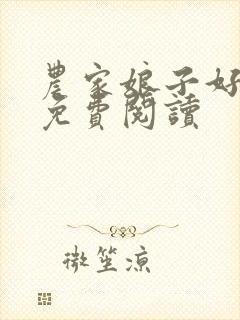 農家娘子好
免費閱讀
微笙涼